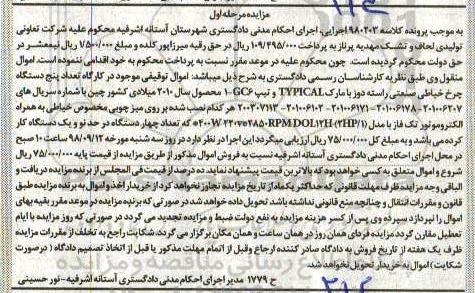 مزایده مرحله اول
به موجب پرونده کلاسه ۹۸۰۲۰۳ اجرایی، اجرای احکام مدنی دادگستری شهرستان آستانه اشرفیه محکوم علیه شرکت تعاونی
تولیدی لحاف و تشک مهدیه پرناز به پرداخت ۱۰۹/۴۹۵/۰۰۰ ریال در حق رقیه میرزاپور کلده و مبلغ ۷/۵۰۰/۰۰۰ ریال نیمعشر در
حق دولت محکوم گردیده است. چون محکوم علیه در موعد مقرر نسبت به پرداخت محکوم به خود اقدامی ننموده است. اموال
منقول وی طبق نظریه کارشناسان رسمی دادگستری به شرح ذیل میباشد: اموال توقیفی موجود در کارگاه تعداد پنج دستگاه
چرخ خیاطی صنعتی راسته دوز با مارک TYPICAL و تیپ GC۶-۱ محصول سال ۲۰۱۰ میلادی کشور چین با شماره سریال های
۲۰۱۰۰۶۲۰۷-۲۰۱۰۰۶۱۷۸-۲۰۱۰۰۶۱۷۱-۲۰۱۰۰۶۱۰۲-۲۰۰۳۰۷۱۱۳ هر کدام نصب شده بر روی میز چوبی مخصوص خیاطی به همراه
الکتروموتور تک فاز با مدل (۲۴۰۰W-۲۲۰v۲۸۵۰-RPM DOL۱۲H (۳HP/۱ که تعداد چهار دستگاه در حد نو و یک دستگاه کار
کرده می باشد و به مبلغ کل ۷۵/۰۰۰/۰۰۰ ریال ارزیابی میگردد این اجرا در نظر دارد در روز سه شنبه مورخه ۹۸/۰۹/۱۲ ساعت ۱۰ صبح
در محل اجرای احکام مدنی دادگستری آستانه اشرفیه نسبت به فروش اموال مذکور از طریق مزایده از قیمت پایه ۷۵/۰۰۰/۰۰۰ ریال
شروع و اموال متعلق به کسی خواهد بود که بالاترین قیمت پیشنهاد نماید. ده درصد از قیمت فی المجلس از برنده مزایده دریافت و
الباقی وجه مزایده ظرف مهلت قانونی که حداکثر یکماه از تاریخ مزایده تجاوز نخواهد کرد از خریدار اخذ و اموال به برنده مزایده طبق
قانون و مقررات انتقال و چنانچه منع قانونی نداشته باشد تحویل داده خواهد شد در صورتی که برنده مزایده در موعد مقرر بقیه بهای
اموال را نپردازد سپرده وی پس از کسر هزینه مزایده به نفع دولت ضبط و مزایده تجدید می گردد در صورتی که روز مزایده با ایام
تعطیل مقارن گردد مزایده فردای همان روز در همان ساعت و همان مکان برگزار می گردد. شکایت راجع به تخلف از مقررات مزایده
ظرف یک هفته از تاریخ فروش به دادگاه صادر کننده ارجاع وقبل از اتمام مهلت مذکور یا قبل از اتخاذ تصمیم دادگاه (در صورت
شکایت) اموال به خریدار تحویل نخواهد شد.
ح ۱۷۷۹ مدیر اجرای احکام مدنی دادگستری آستانه اشرفیه- نور حسینی